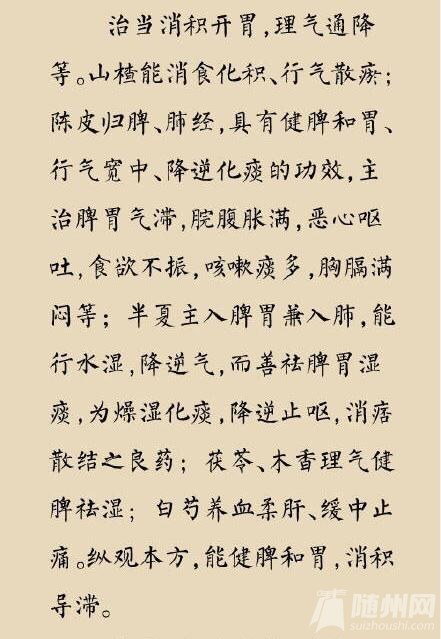 治当消积开胃,理气通降
等。山楂能消食化积、行气散瘀;
陈皮归脾、肺经,具有健脾和胃、
行气宽中、降逆化痰的功效,主
治脾胃气滞,脘腹胀满,恶心呕
吐,食欲不振,咳嗽痰多,胸膈满
闷等;半夏主入脾胃兼入肺,能
行水湿,降逆气,而善祛脾胃湿
痰,为燥湿化痰,降逆止呕,消痞
散结之良药;茯苓、木香理气健
脾祛湿;白芍养血柔肝、缓中止
痛。纵观本方,能健脾和胃,消积
导滞。
随州网
suizhoushi.com